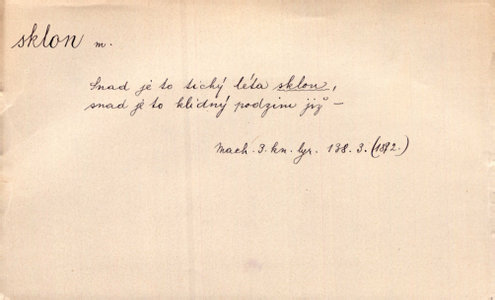 sklon m.
Snad je to tichý léta sklon,
snad je to klidný podzim již –
Mach. 3. kn. lyr. 138. 3. (1892.)